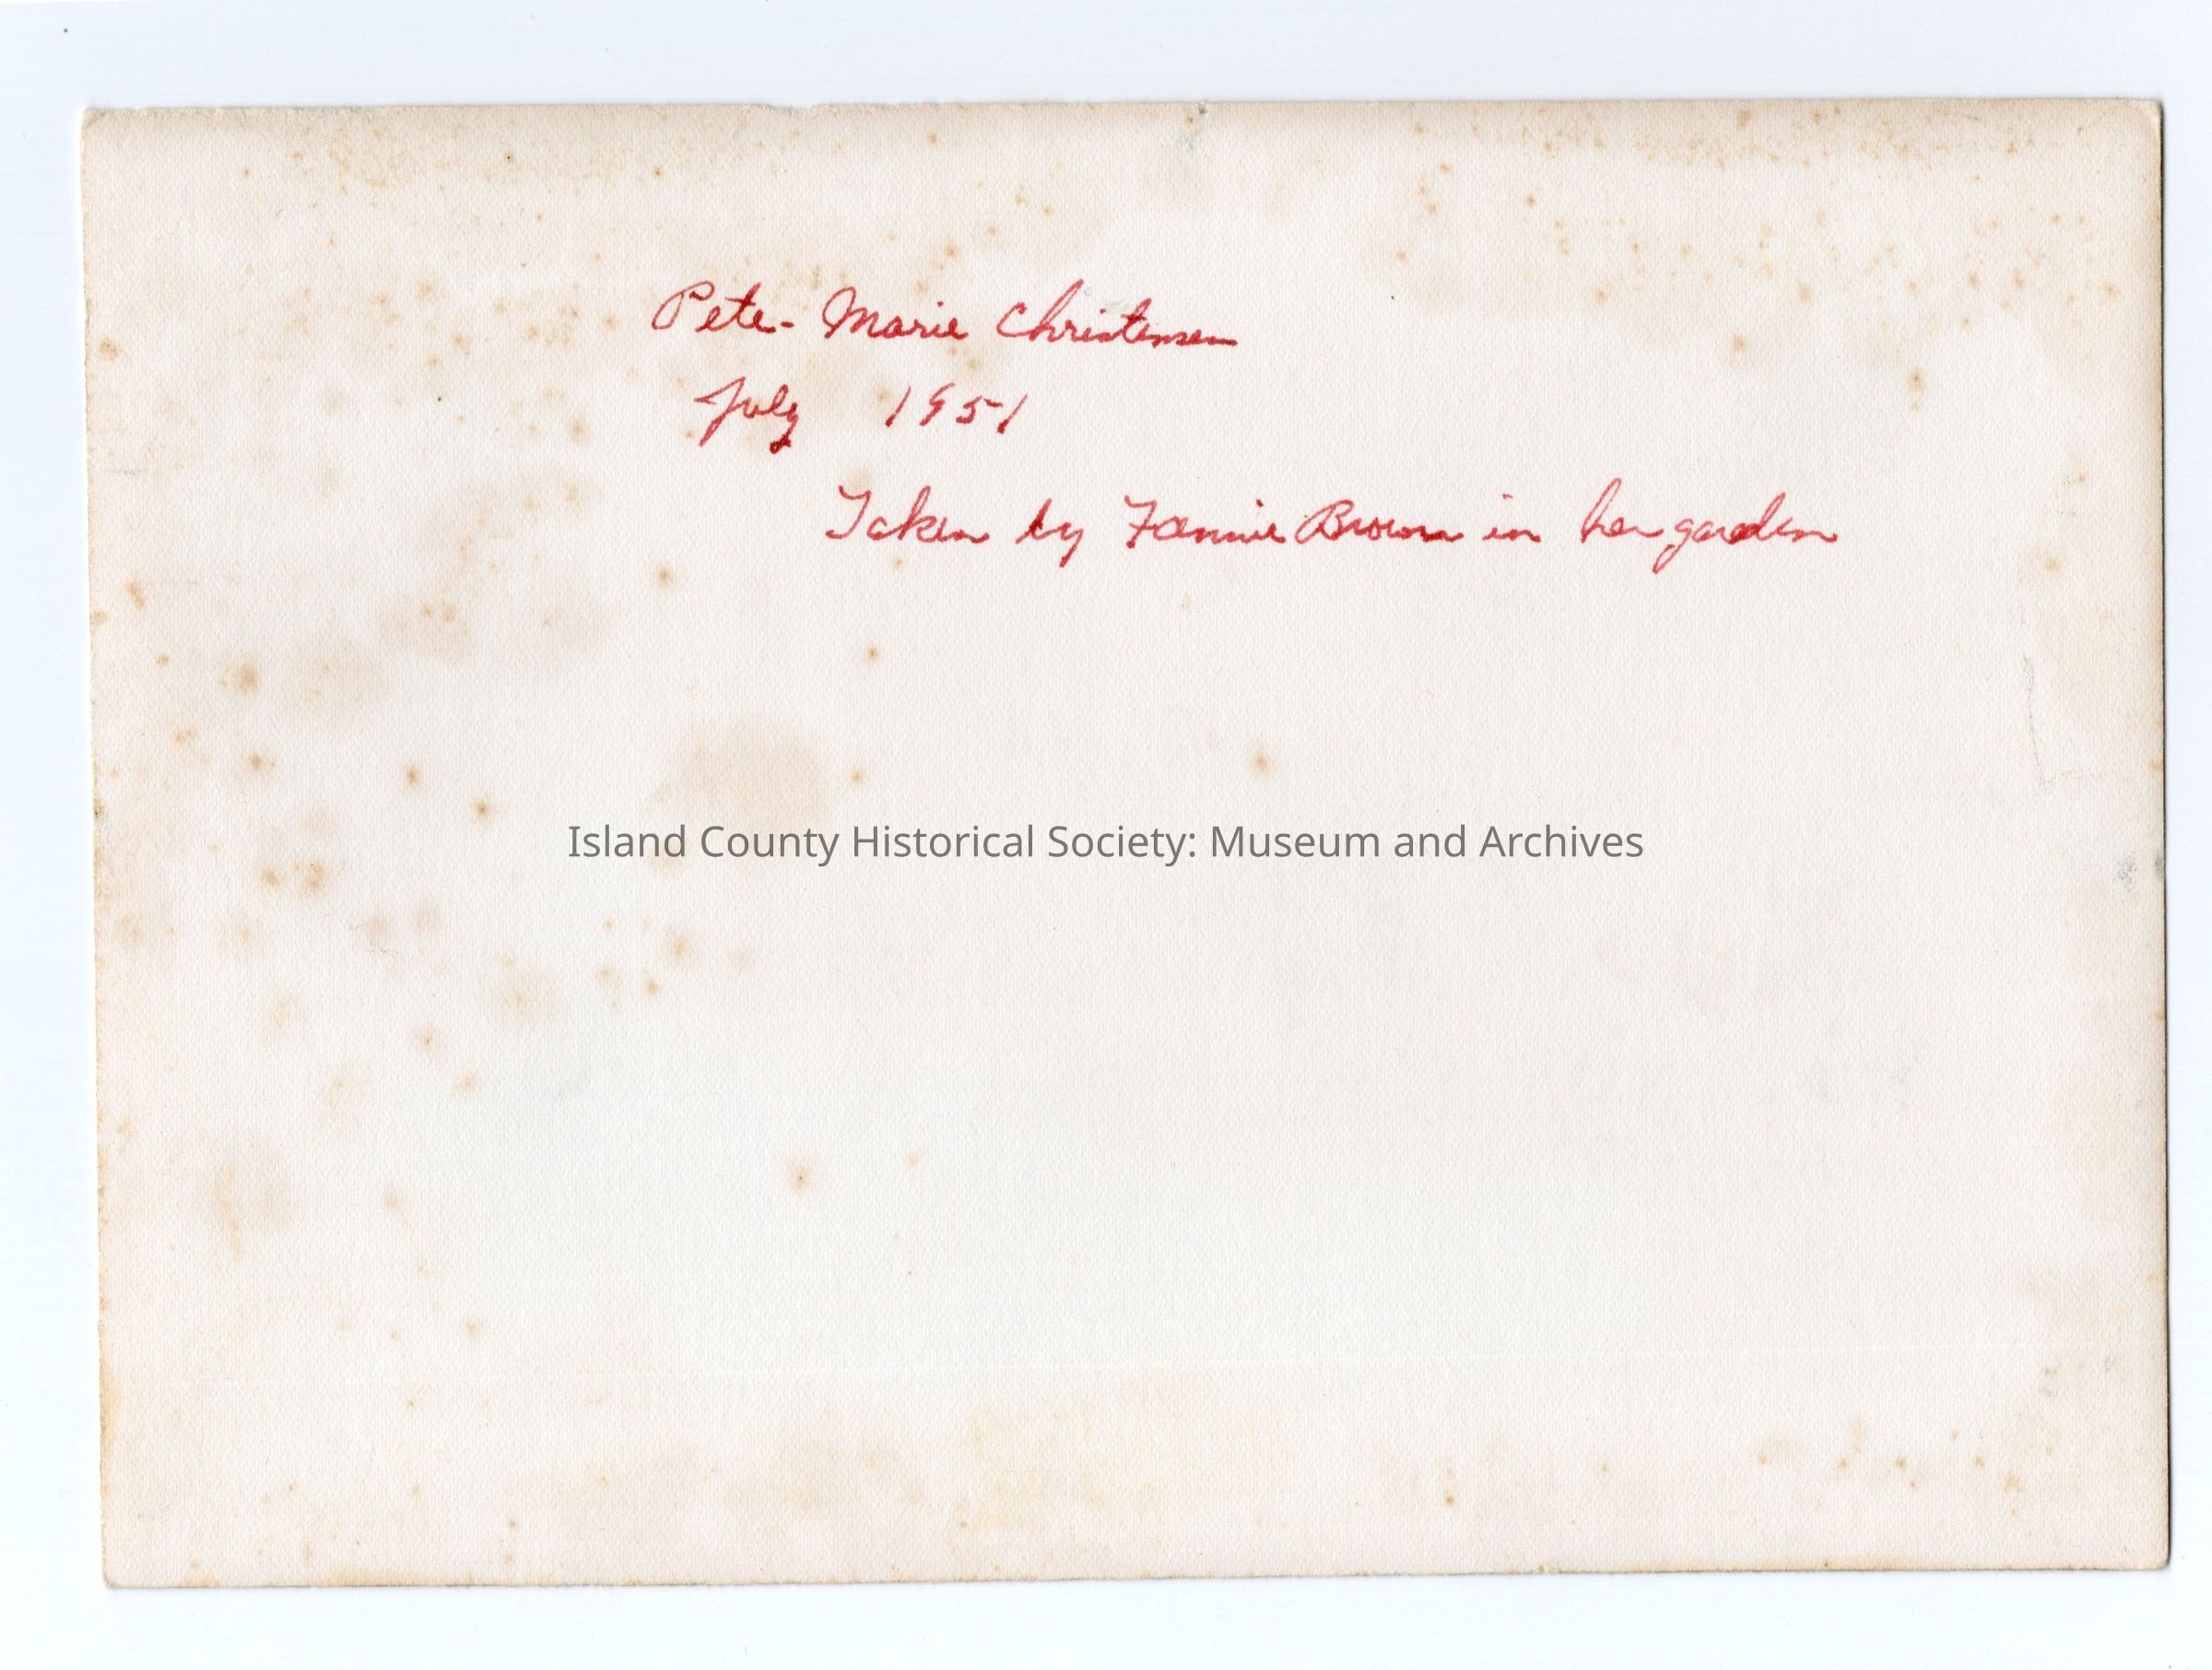 Pete - Marie Christensen
July 1951
Taken by Fannie Brown in her garden
Island County Historical Society: Museum and Archives